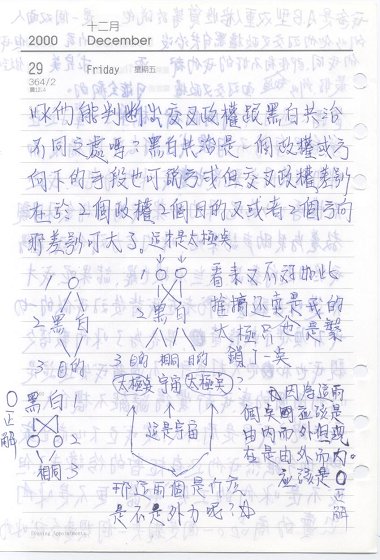 十二月
2000 December
29 Friday 星期五
364/2
你們能判斷出交叉政權跟黑白共治
不同之處嗎?黑白共治是一個政權或方
向不的手段也可說亏或但交叉政權差別
在於2個政權2個目的又或者2個方向
那差別可大了。這才是太極矣
1 1 看來又不那如此
2 黑白 2 黑白 推擠还实是我的
太極只也是繫
3 目的 3 目的 相同目的 鎖了一矣
太極矣 宇宙 太極矣?
這是宇宙
正解
黑白 1
2
相同 3
因為這兩
個矣應該是
由內而外但現
在是由外而內。
應該是 正解
那這兩個是什麼
是不是外力呢?